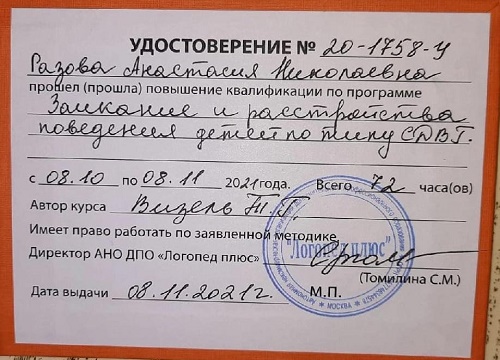 УДОСТОВЕРЕНИЕ № 20-1758-У
Разова Анастасия Николаевна
прошел (прошла) повышение квалификации по программе
Заикание и расстройства
поведения детей по типу СДВГ.
с 08.10 по 08.11 2021 года. Всего 72 часа(ов)
Автор курса Визель Т.Г.
Имеет право работать по заявленной методике.
"Логопед плюс"
Директор АНО ДПО «Логопед плюс»
(Томилина С.М.)
Дата выдачи 08.11.2021г. М.П.
МОСКВА